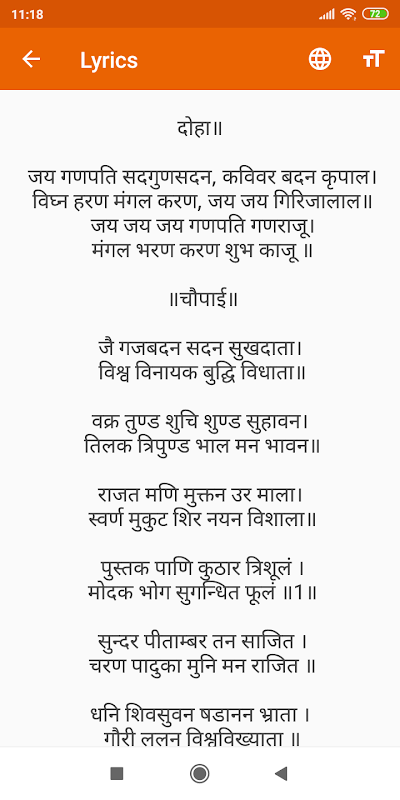 11:18
72
Lyrics
दोहा॥
जय गणपति सदगुणसदन, कविवर बदन कृपाल।
विघ्न हरण मंगल करण, जय जय गिरिजालाल॥
जय जय जय गणपति गणराजू।
मंगल भरण करण शुभ काजू ॥
॥चौपाई॥
जै गजबदन सदन सुखदाता।
विश्व विनायक बुद्धि विधाता॥
वक्र तुण्ड शुचि शुण्ड सुहावन।
तिलक त्रिपुण्ड भाल मन भावन॥
राजत मणि मुक्तन उर माला।
स्वर्ण मुकुट शिर नयन विशाला॥
पुस्तक पाणि कुठार त्रिशूलं ।
मोदक भोग सुगन्धित फूलं ॥1॥
सुन्दर पीताम्बर तन साजित ।
चरण पादुका मुनि मन राजित ॥
धनि शिवसुवन षडानन भ्राता ।
गौरी ललन विश्वविख्याता ॥